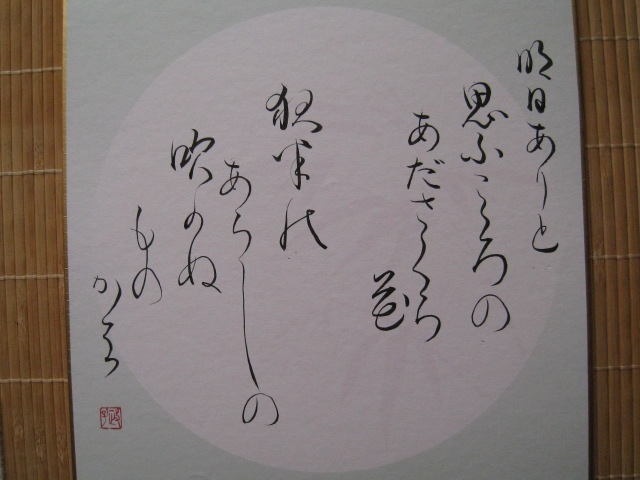 明日ありと
思ふこころの
あださくら
夜半
あらしの
吹かぬ
もの
かは